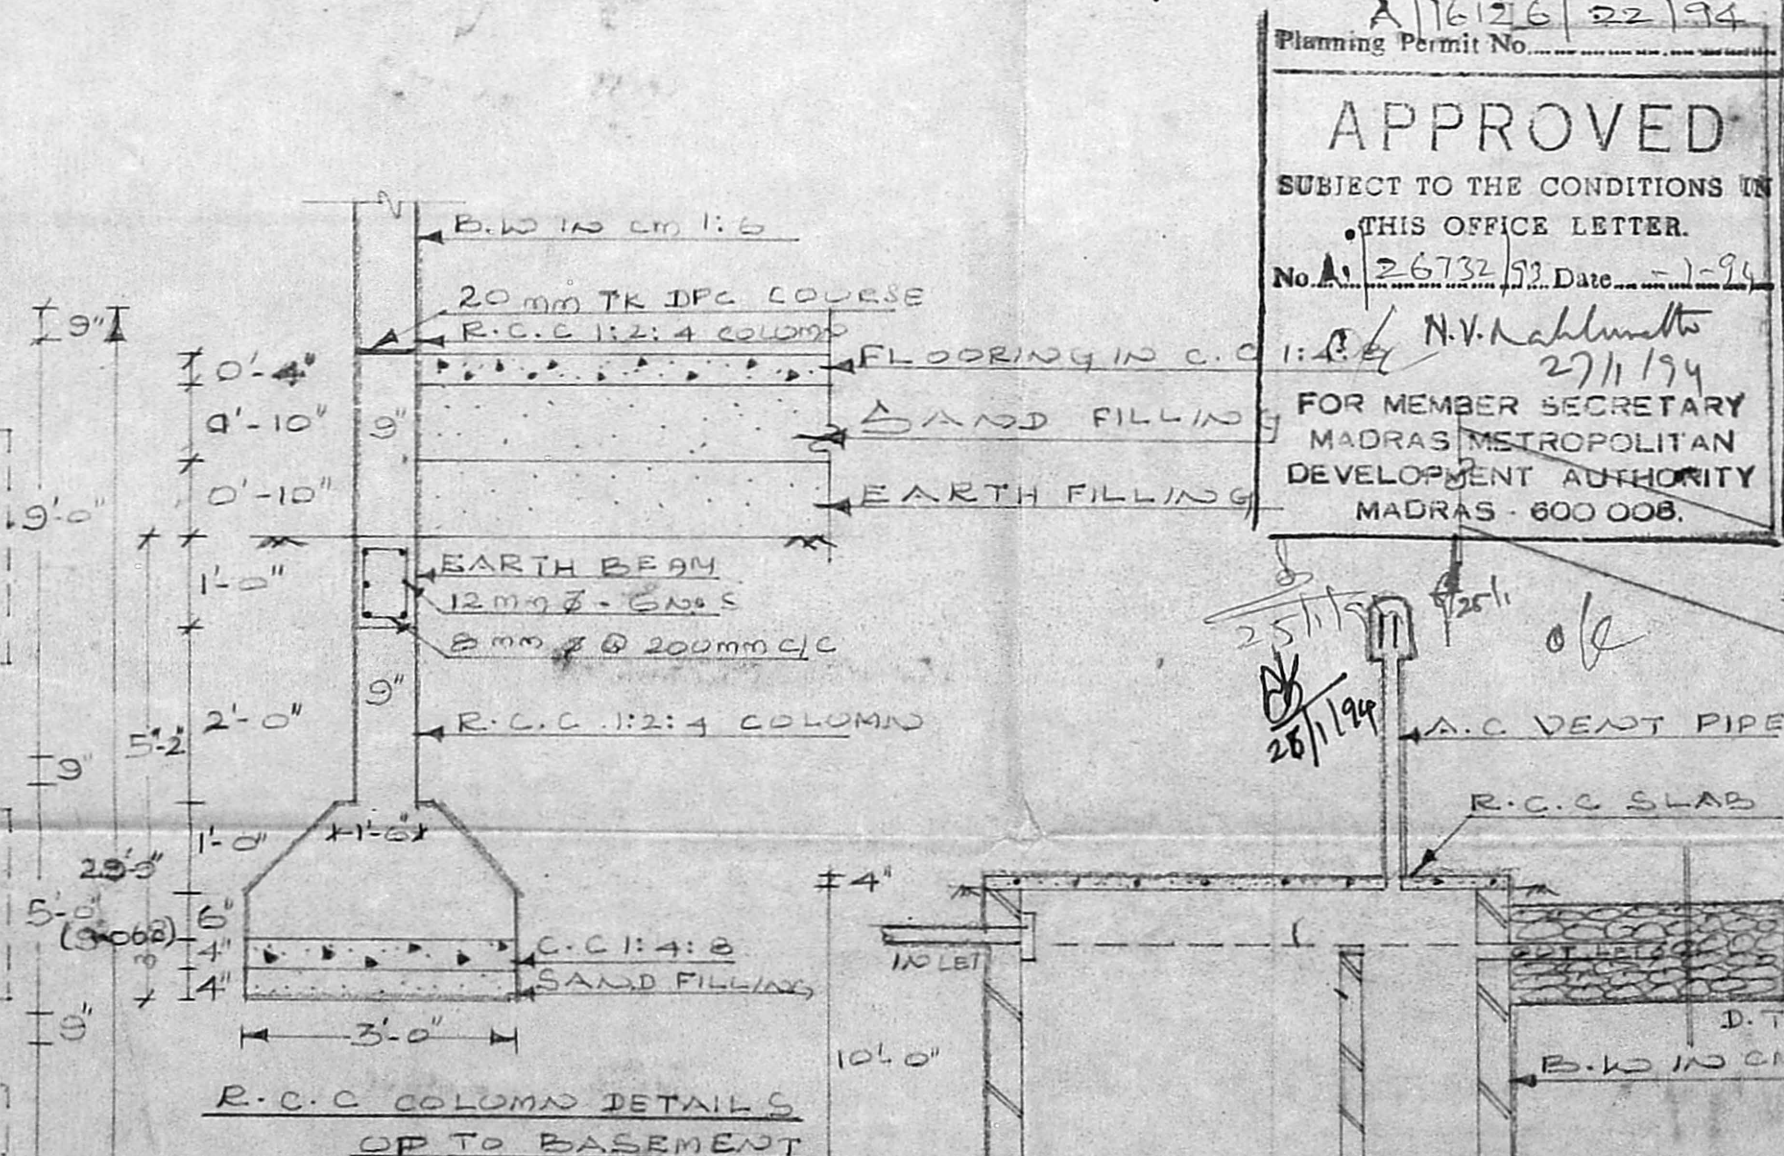 A/16126/22/94
Planning Permit No
APPROVED
SUBJECT TO THE CONDITIONS IN
THIS OFFICE LETTER.
No. A. 26732/93 Date -1-94
27/1/94
FOR MEMBER SECRETARY
MADRAS METROPOLITAN
DEVELOPMENT AUTHORITY
MADRAS - 600 008.
25/1/9
25/1
o/c
25/1/94
B.W IN CM 1:6
20 mm TK DPC COURSE
R.C.C 1:2:4 COLUMN
FLOORING IN C.C 1:4:8
SAND FILLING
EARTH FILLING
EARTH BEAM
12mm ø - 6 Nos
8 mm ø @ 200mm C/C
R.C.C 1:2:4 COLUMN
C.C 1:4:8
SAND FILLING
9"
0'-4"
0'-10"
9"
0'-10"
9'-0"
1'-0"
9"
2'-0"
5'-2"
9"
1'-0"
1'-6"
29'-9"
5'-0"
6"
4"
4"
9"
3'-0"
R.C.C COLUMN DETAILS
UP TO BASEMENT
A.C VENT PIPE
R.C.C SLAB
4"
INLET
OUTLET
10'-0"
D.T
B.W IN CM